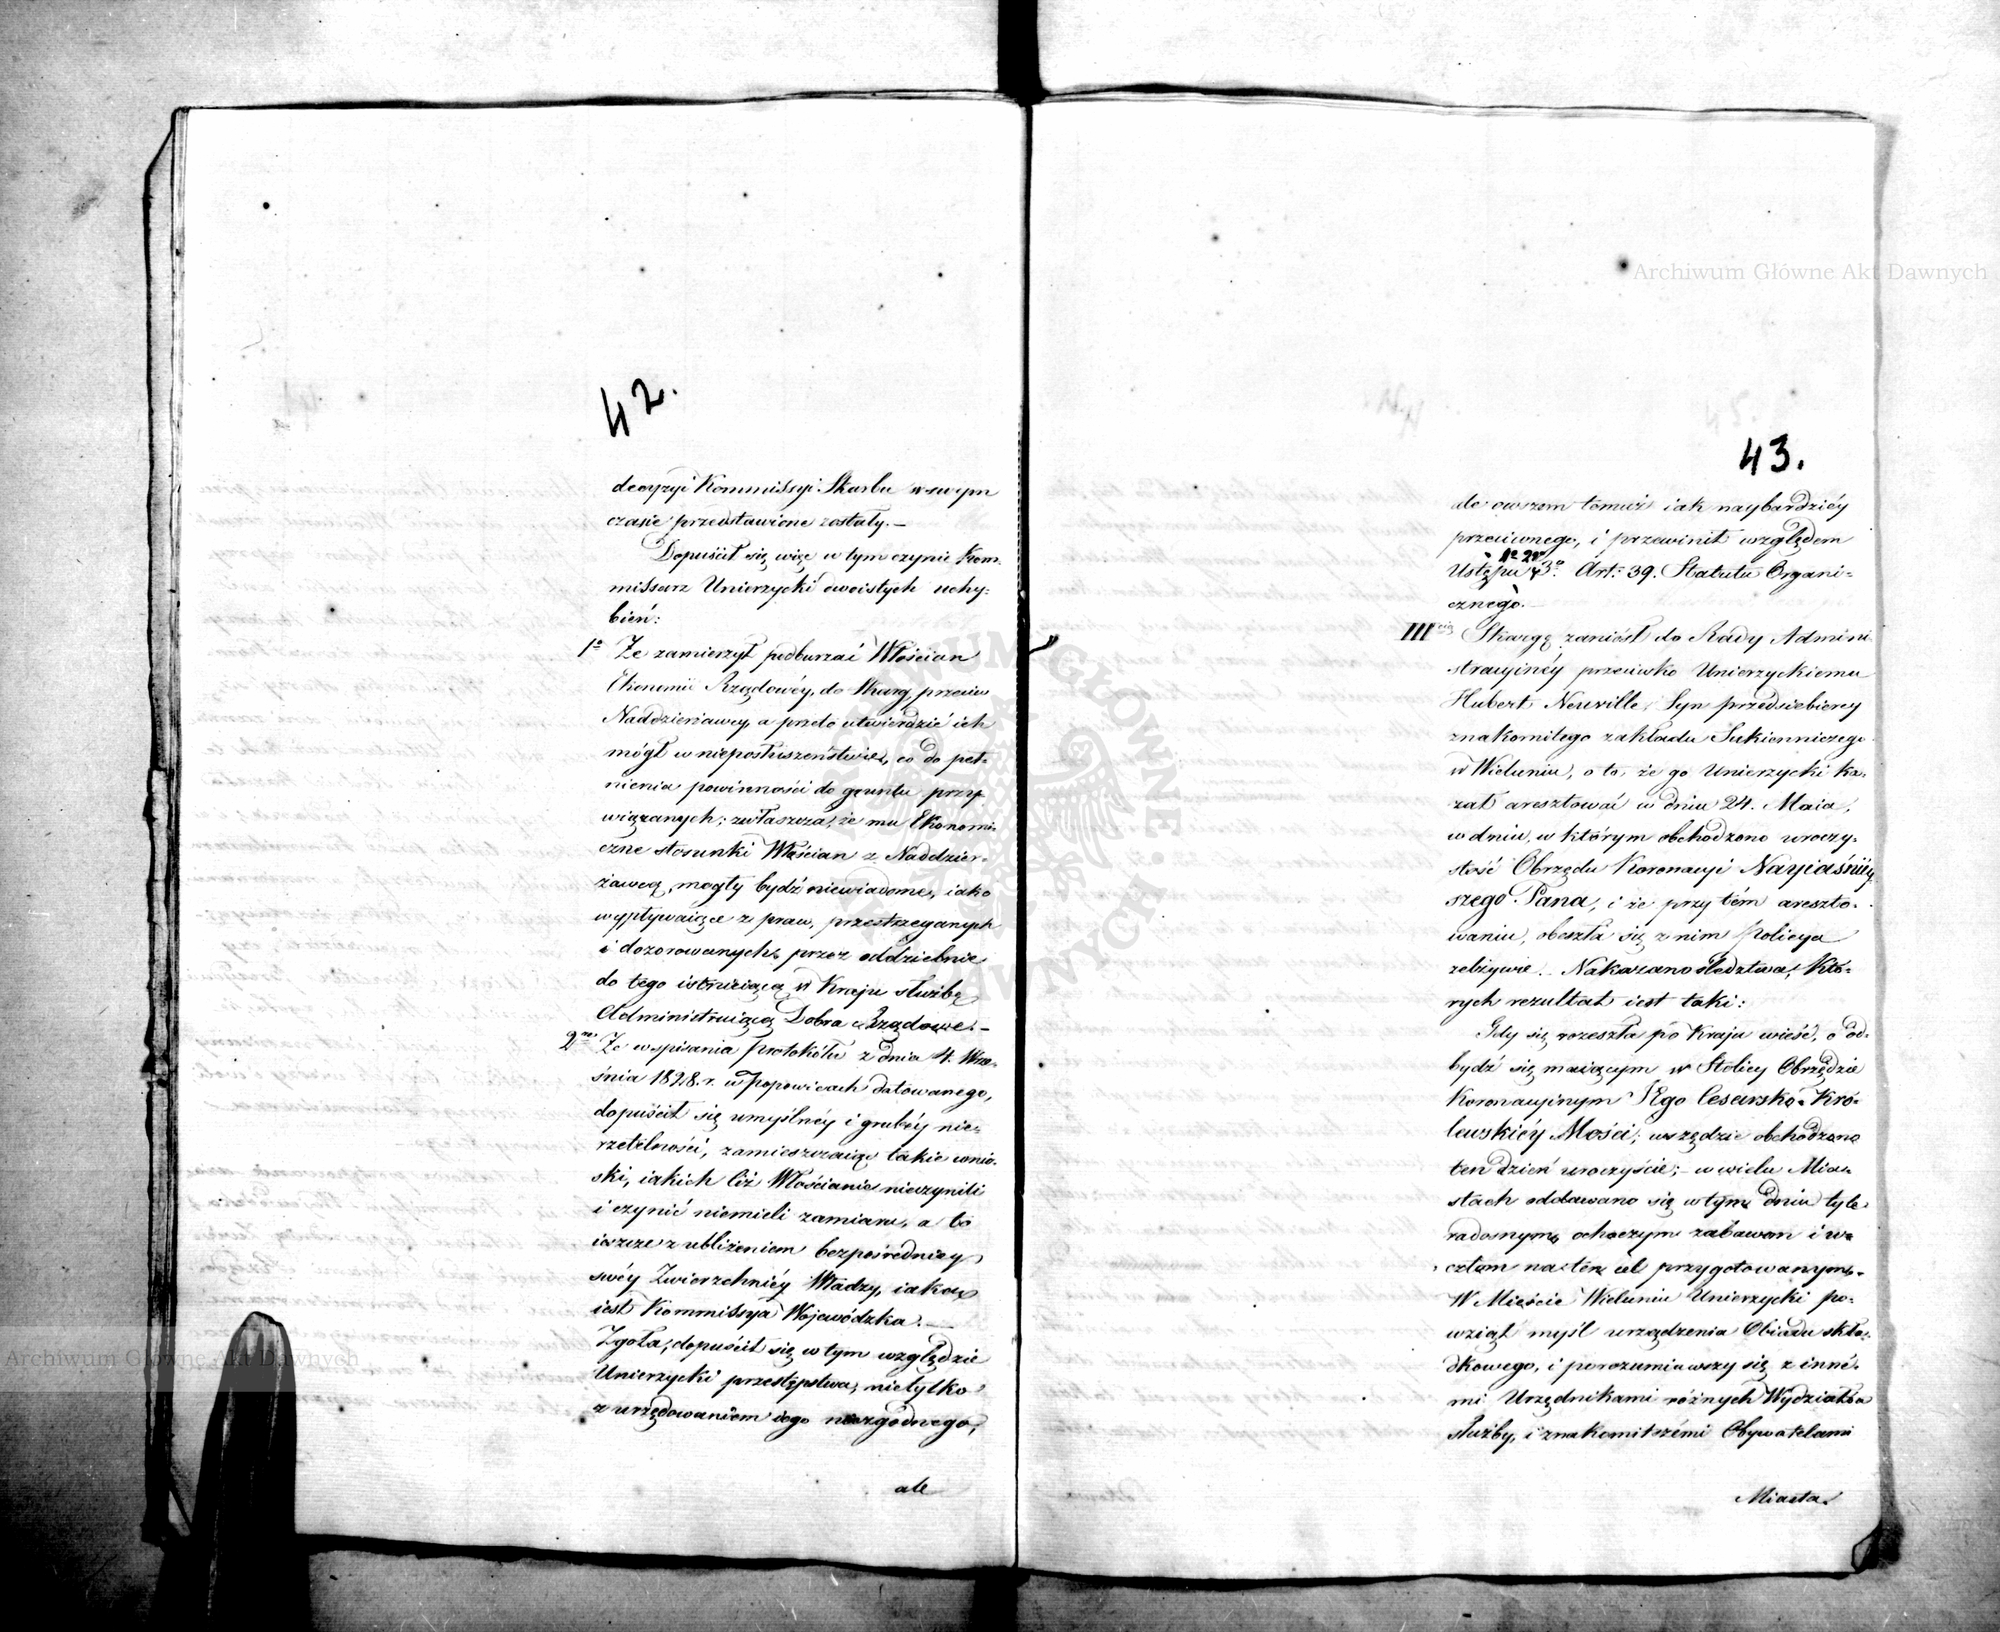 42.
decyzyi Kommissyi Skarbu w swym
czasie przedstawione zostały.—
Dopuścił się więc w tym czynie Kom-
missarz Unierzycki dwoistych uchy-
bień:
1o Że zamierzył podburzać Włościan
Ekonomii Rządowéy, do skarg przeciw
Naddzierżawcy, a przeto utwierdzić ich
mógł w nieposłuszeństwie, co do peł-
nienia powinności do gruntu przy-
wiązanych; zwłaszcza, że mu Ekonomi-
czne stosunki Włościan z Naddzier-
żawcą, mogły bydź niewiadome, iako
wypływaiące z praw, przestrzeganych
i dozorowanych, przez oddzielnie
do tego istnieiącą w Kraju służbę
Administruiącą Dobra Rządowe.—
2re Że w spisania protokółu z dnia 4. Wrze-
śnia 1828. r. w Popowicach datowanego,
dopuścił się umyślnéy i grubéy nie-
rzetelności, zamieszczaiąc takie wnio-
ski, iakich Ciż Włościanie nieczynili
i czynić niemieli zamiaru, a to
ieszcze z ubliżeniem bezpośredniey
swéy Zwierzchniéy Władzy, iaką
iest Kommissya Wojewódzka.—
Zgoła, dopuścił się w tym względzie
Unierzycki przestępstwa, nietylko
z urzędowaniem iego niezgodnego,
ale
43.
ale owszem temuż iak naybardziéy
przeciwnego, i przewinił względem
1o 2o
Ustępu i 3o Art: 39. Statutu Organi-
cznego.—
IIIcią Skargę zaniósł do Rady Admini-
stracyinéy przeciwko Unierzyckiemu
Hubert Neuville, Syn przedsiebiercy
znakomitego zakładu Sukienniczego
w Wieluniu, o to, że go Unierzycki ka-
zał aresztować w dniu 24. Maia,
w dniu, w którym obchodzono uroczy-
stość Obrzędu Koronacyi Nayiaśniéy-
szego Pana, i że przy tém areszto-
waniu, obeszła się z nim Policya
zelżywie. Nakazano śledztwa, któ-
rych rezultat iest taki:
Gdy się rozeszła po Kraju wieść, o od-
bydź się maiącym w Stolicy Obrzędzie
Koronacyjnym JEgo Cesarsko-Kró-
lewskiéy Mości; wszędzie obchodzono
ten dzień uroczyście;— w wielu Mia-
stach oddawano się w tym dniu tyle
radosnym, ochoczym zabawom i u-
cztom na ten cel przygotowanym.
W Mieście Wieluniu Unierzycki po-
wziął myśl urządzenia Obiadu skła-
dkowego, i porozumiawszy się z inné-
mi Urzędnikami różnych Wydziałów
służby, i znakomitszémi Obywatelami
Miasta
Archiwum Główne Akt Dawnych
Archiwum Główne Akt Dawnych